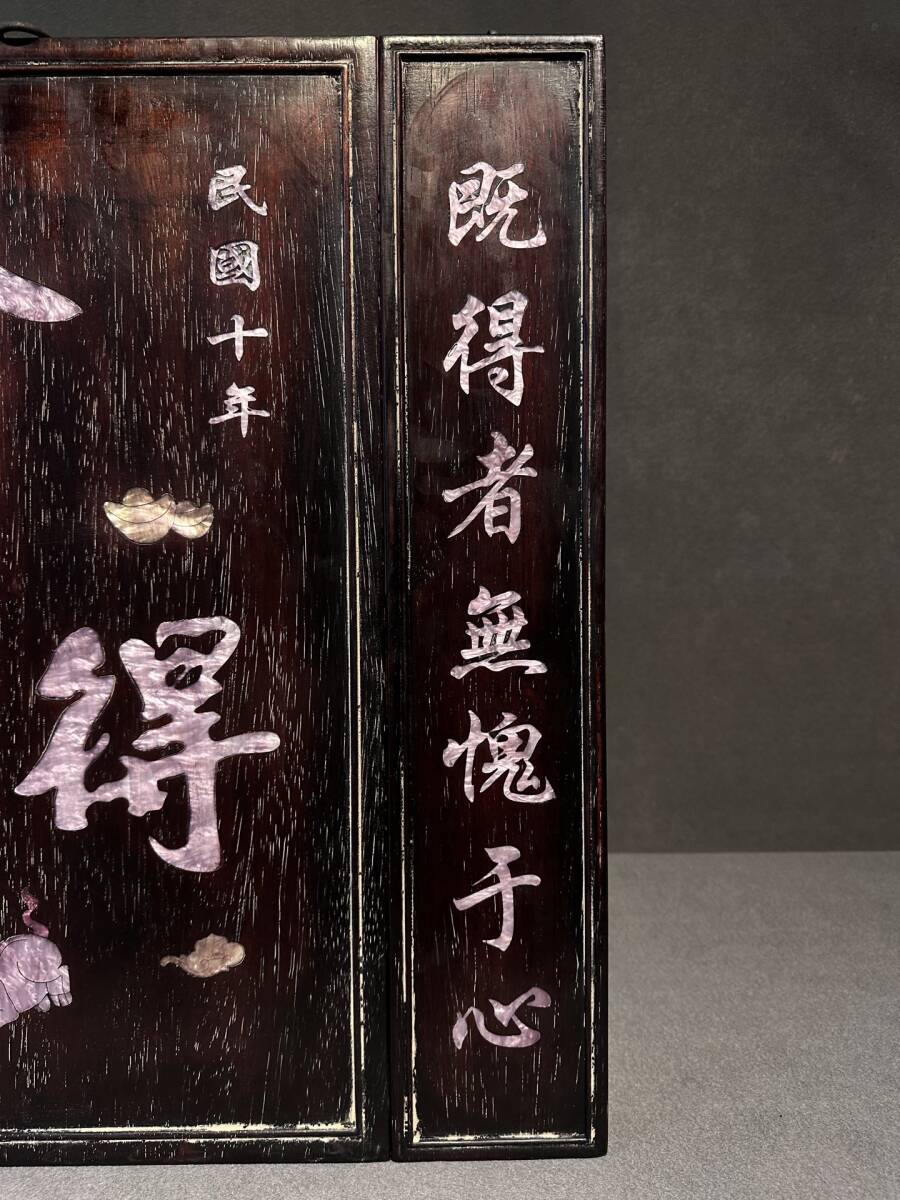 既得者無愧于心
民國十年
得